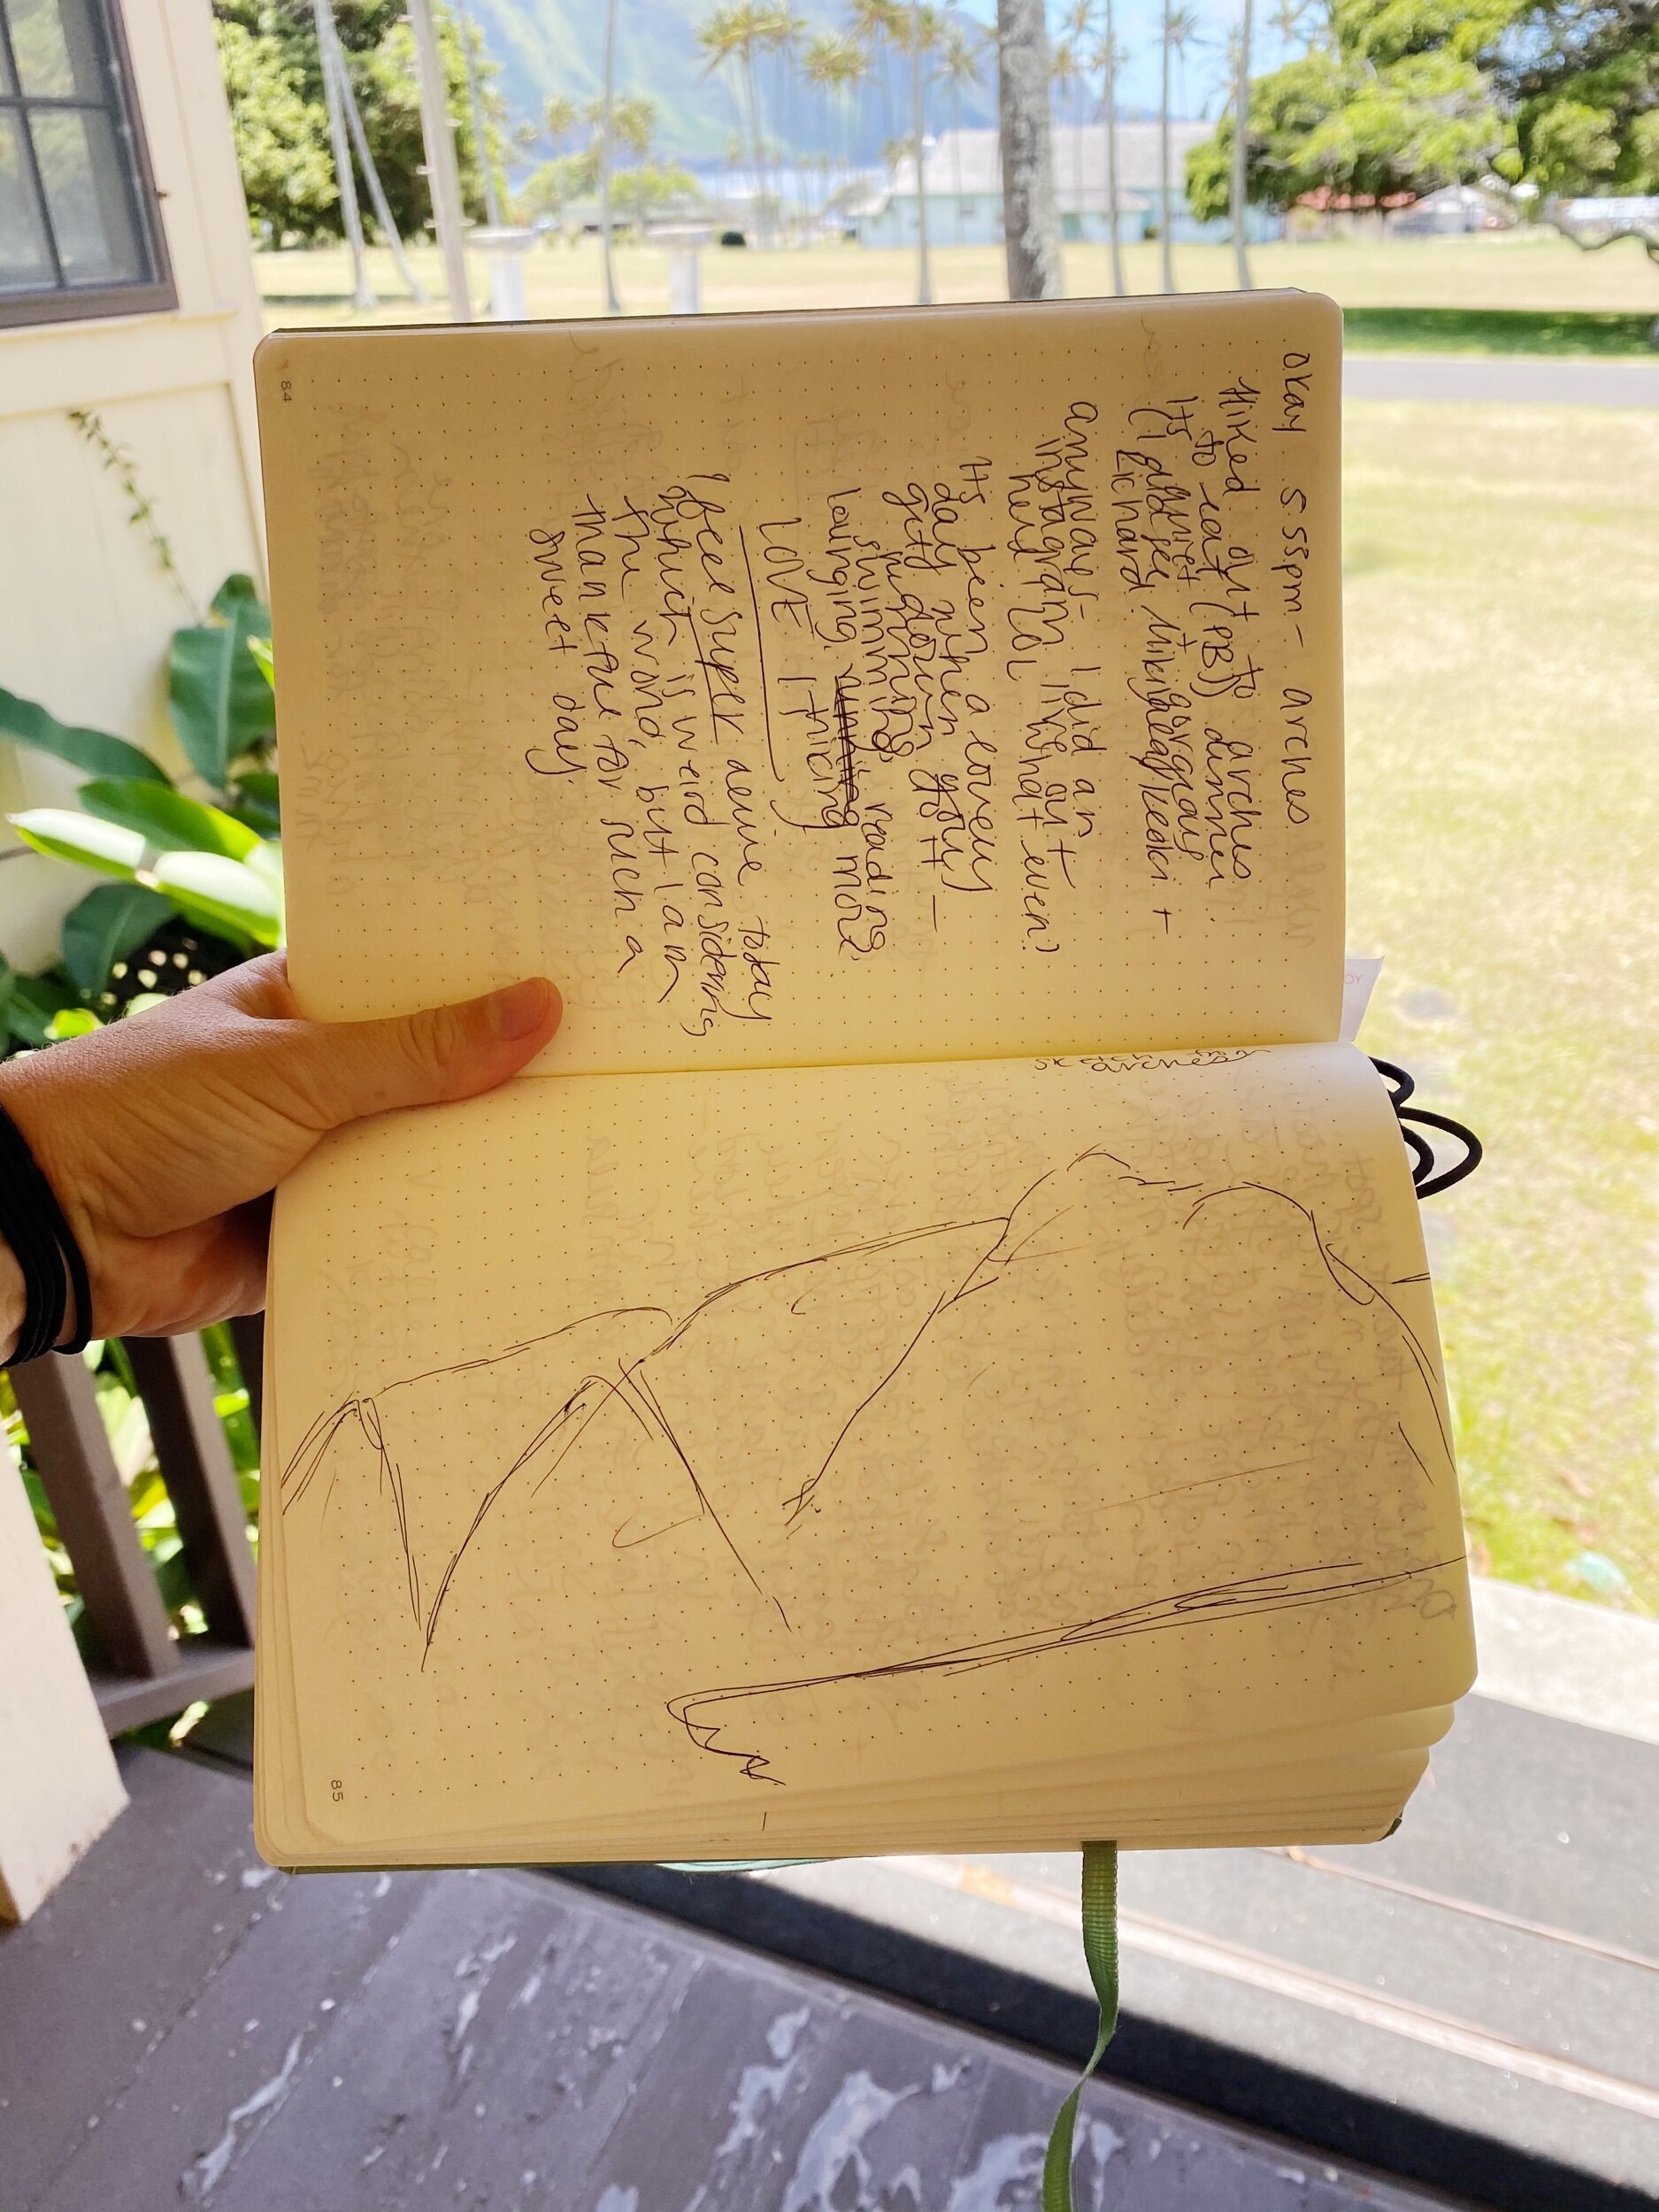 okay 5 55pm - arches
Hiked out to arches
to eat (PB) dinner
Its quiet + gorgeous
(I did see
Richard.
anyways - I did an
instagram live out +
help LOL what even?
Its been a lovely
day when you
get down to it -
running,
swimming, reading
lounging, more
LOVE I think
I feel super alive today
which is weird considering
the world, but I am
thankful for such a
sweet day.
84
sketch from
arches
85